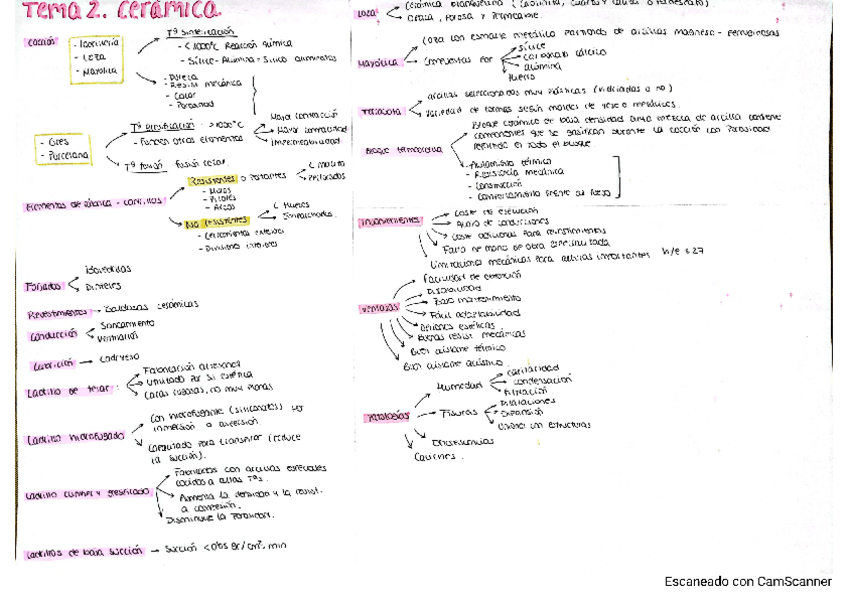 Tema 2. Cerámica
Cocción
- Ladrillería
- Loza
- Mayólica
Tª sinterización
- < 1000°C Reacción química
- Sílice-Alumina + Silico aluminatos
- Dureza
- Resist mecánica
- Color
- Porosidad
- Gres
- Porcelana
Tª gresificación → >1000°C
- Funden otros elementos
Mayor contracción
Mayor compacidad
Impermeabilidad
Tª fusión fusión total
Elementos de fábrica - ladrillos
Resistentes o portantes
- Muros
- Pilares
- Arcos
Macizo
Perforados
No resistentes
- Cerramientos exteriores
- Divisiones interiores
Huecos
Forjados
Bovedillas
Dinteles
Revestimientos → Baldosas cerámicas
Conducción
Saneamiento
Ventilación
Cubrición → Cod y teja
Ladrillo de tejar:
Fabricación artesanal
Utilizado por su estética
Caras rugosas, no muy planas
Ladrillo hidrofugado
Con hidrofugante (siliconatos) por
inmersión o aspersión
Capacitado para transpirar (reduce
la succión).
Ladrillo clinker y gresificado
Fabricados con arcillas especiales
cocidas a altas Tªs.
Aumenta la densidad y la resist.
a compresión.
Disminuye la porosidad.
Ladrillos de baja succión → Succión < 0'05 gr/cm², min
Loza
Mayólica
Loza con esmalte metálico partiendo de arcillas magnésico - ferruginosas
Compuestas por
Sílice
Carbonato cálcico
alúmina
Hierro
Terracota
arcillas seleccionadas muy plásticas (vidriadas o no)
Variedad de formas según moldes de yeso o metálicos.
Bloque termoarcilla
Bloque cerámico de baja densidad. Una mezcla de arcilla contiene
componentes que se gasifican durante la cocción con porosidad
repartida en todo el bloque
- Aislamiento térmico
- Resistencia mecánica
- Construcción
- Comportamiento frente al fuego
Inconvenientes
Coste de ejecución
Coste adicional para revestimientos
Falta de mano de obra especializada
Limitaciones mecánicas para alturas importantes h/e ≤ 27
Ventajas
Facilidad de ejecución
Disponibilidad
Bajo mantenimiento
Fácil adaptabilidad
Opciones estéticas
Buenas resist mecánicas
Buen aislante térmico
Buen aislante acústico
Patologías
Humedad
Capilaridad
Condensación
Filtración
Fisuras
Dilataciones
Expansión
Unión con estructuras
Eflorescencias
Caliches.
Escaneado con CamScanner